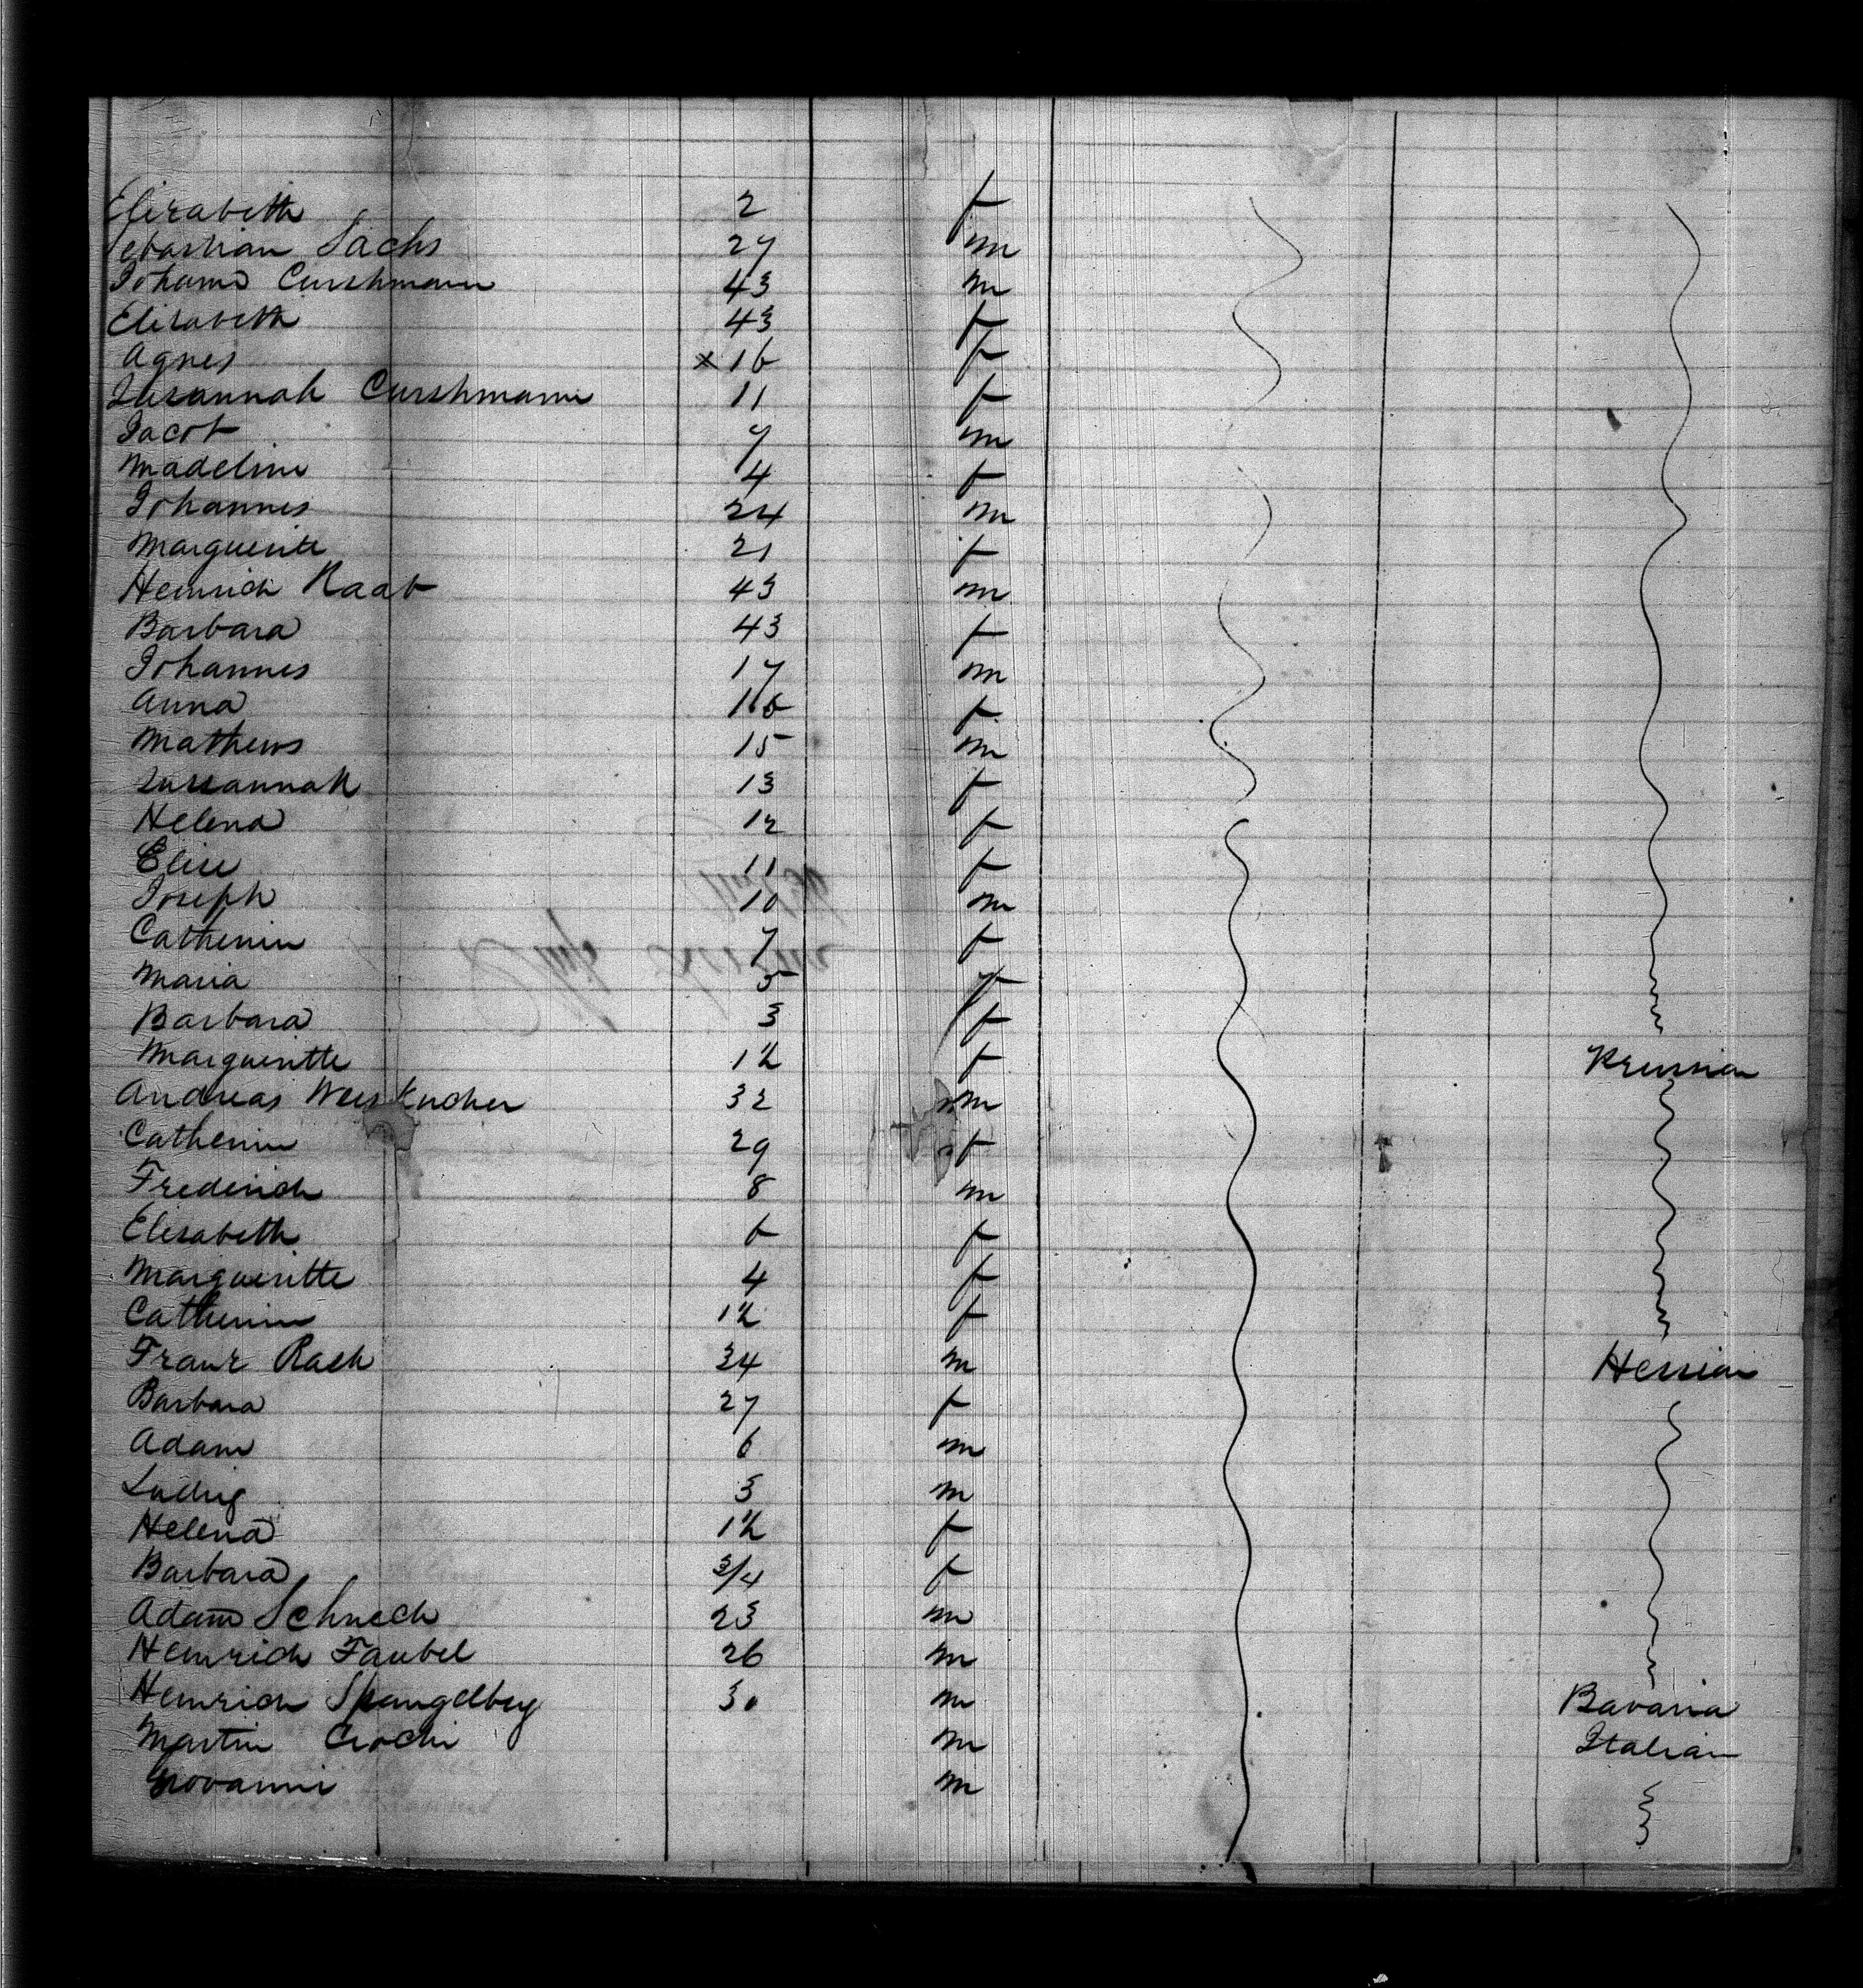 Elizabeth 2 f
Sebastian Sachs 27 m
Johann Curshmann 43 m
Elizabeth 43 f
Agnes x 16 f
Susannah Curshmann 11 f
Jacob 7 m
Madeline 4 f
Johannes 24 m
Marguerite 21 f
Heinrich Raab 43 m
Barbara 43 f
Johannes 17 m
Anna 16 f
Mathews 15 m
Sussannah 13 f
Helena 12 f
Elise 11 f
Joseph 10 m
Catherine 7 f
Maria 5 f
Barbara 3 f
Margueritte 1½ f Prussian
Andreas 32 m
Catherine 29 f
Frederich 8 m
Elisabeth 6 f
Margueritte 4 f
Catherine 1½ f
Franz Rash 34 m Hessian
Barbara 27 f
Adam 6 m
Ludwig 3 m
Helena 1½ f
Barbara 3/4 f
Adam Schnech 23 m
Heinrich Faubel 26 m
Heinrich Spangelberg 30 m Bavaria
Martin Ciochi m Italian
Giovanni m